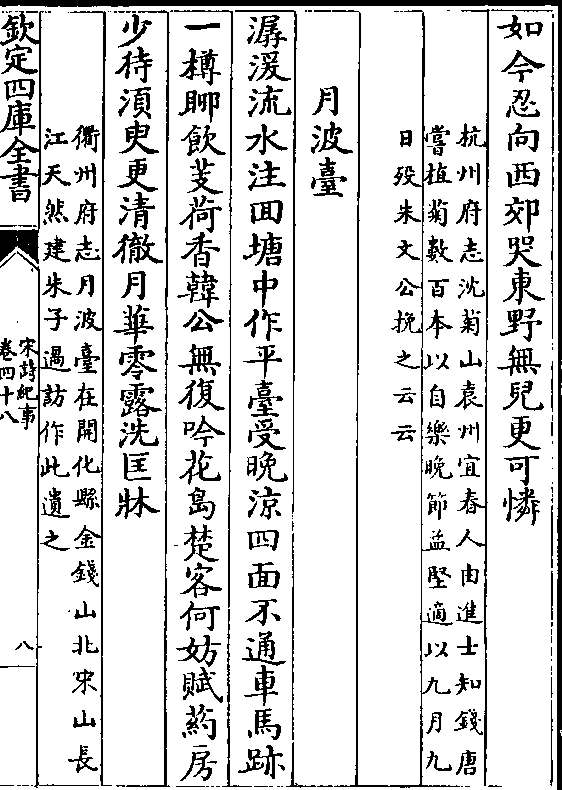 如今忍向西郊哭東野無兒更可憐
杭州府志沈菊山袁州宜春人由進士知錢唐
嘗植菊數百本以自樂晚節益堅適以九月九
日歿朱文公挽之云云
月波臺
潺湲流水注回塘中作平臺受晚涼四面不通車馬跡
一樽聊飲芰荷香韓公無復吟花島楚客何妨賦葯房
少待須臾更清徹月華零露洗匡牀
衢州府志月波臺在開化縣金錢山北宋山長
江天然建朱子過訪作此遺之
欽定四庫全書
宋詩紀事
卷四十八
八